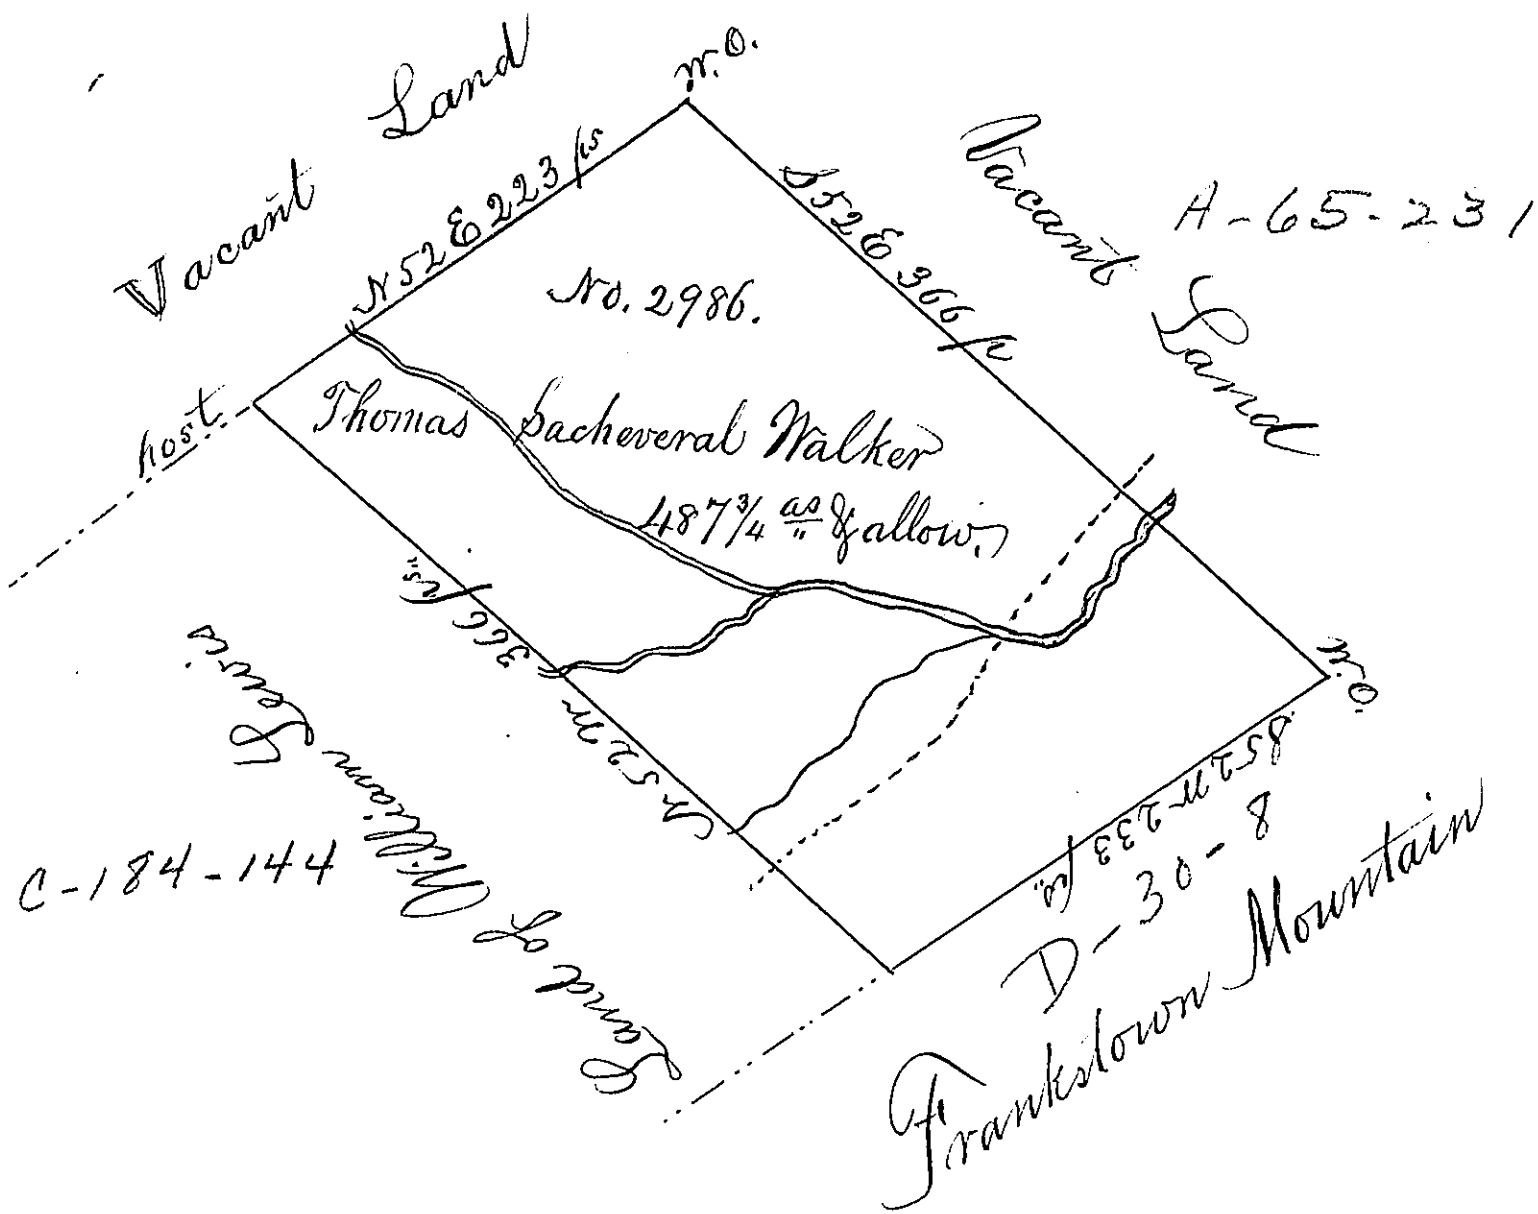 Vacant Land
W.O.
Vacant Land
A-65-231
N 52 E 223 ps
S 52 E 366 p
No. 2986.
Thomas Sacheveral Walker
487 3/4 as & allow.
post
N 52 W 366 ps
W.O.
S 52 W 233 ps
Land of William Lewis
C-184-144
D-30-8
Frankstown Mountain